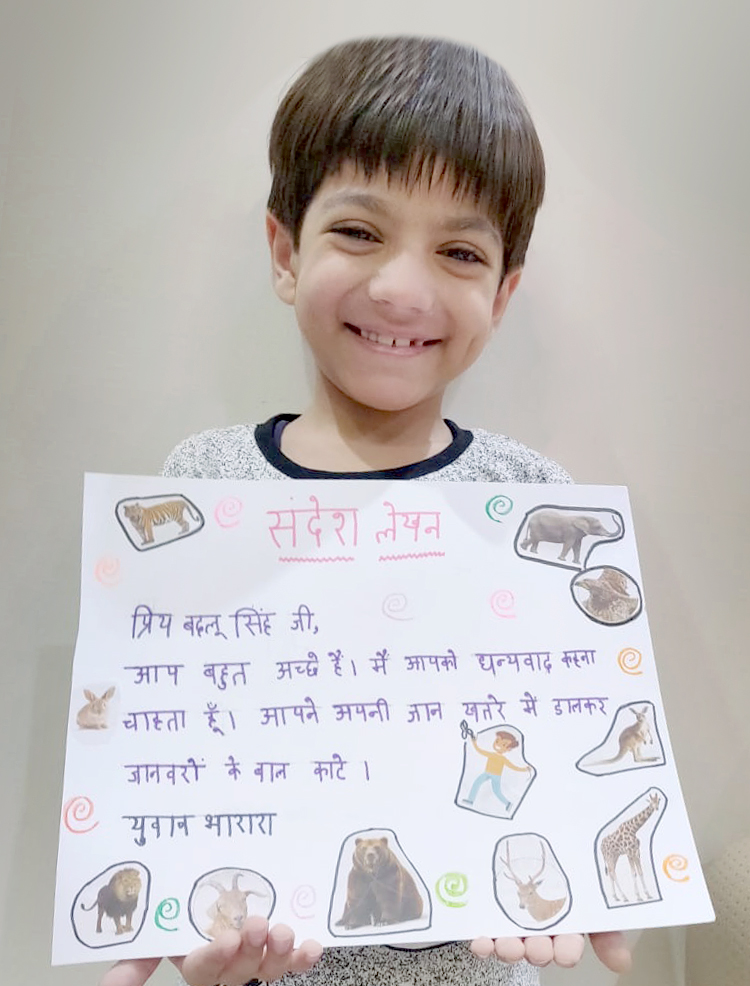 संदेश लेखन
प्रिय बदलू सिंह जी,
आप बहुत अच्छे हैं। मैं आपको धन्यवाद कहना
चाहता हूँ। आपने अपनी जान खतरे में डालकर
जानवरों के बाल काटे।
युवान भारारा